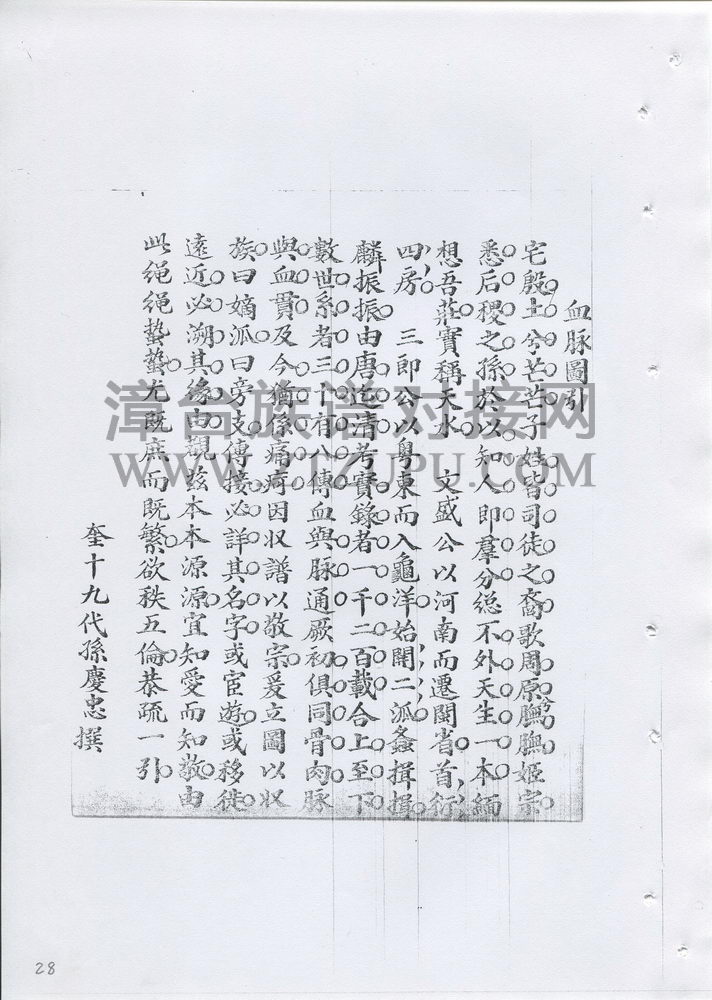 血脉圖引
宅殷土兮芒芒子姓皆司徒之裔歌周原膴膴兮姬宗
悉后稷之孫於以知人即羣分総不外天生一本緬
想吾莊實稱天水　文盛公以河南而遷閩省首行
四房　三郎公以粤東而入龜洋始開二派螽揖揖
麟振振由唐迄清考實錄者一千二百載合上至下
數世系者三十有八傳血與脉通厥初俱同骨肉脉
與血貫及今猶係痛痾因収譜以敬宗爰立圖以収
族曰嫡派曰旁支傳接必詳其名字或宦遊或移徙
遠近必溯其緣由覩兹本本源源宜知愛而知敬由
此绳绳蟄蟄尤既庶而既繁欲秩五倫恭疏一引
奎十九代孫慶忠撰
漳台族谱对接网
WWW.ZTZUPU.COM
28